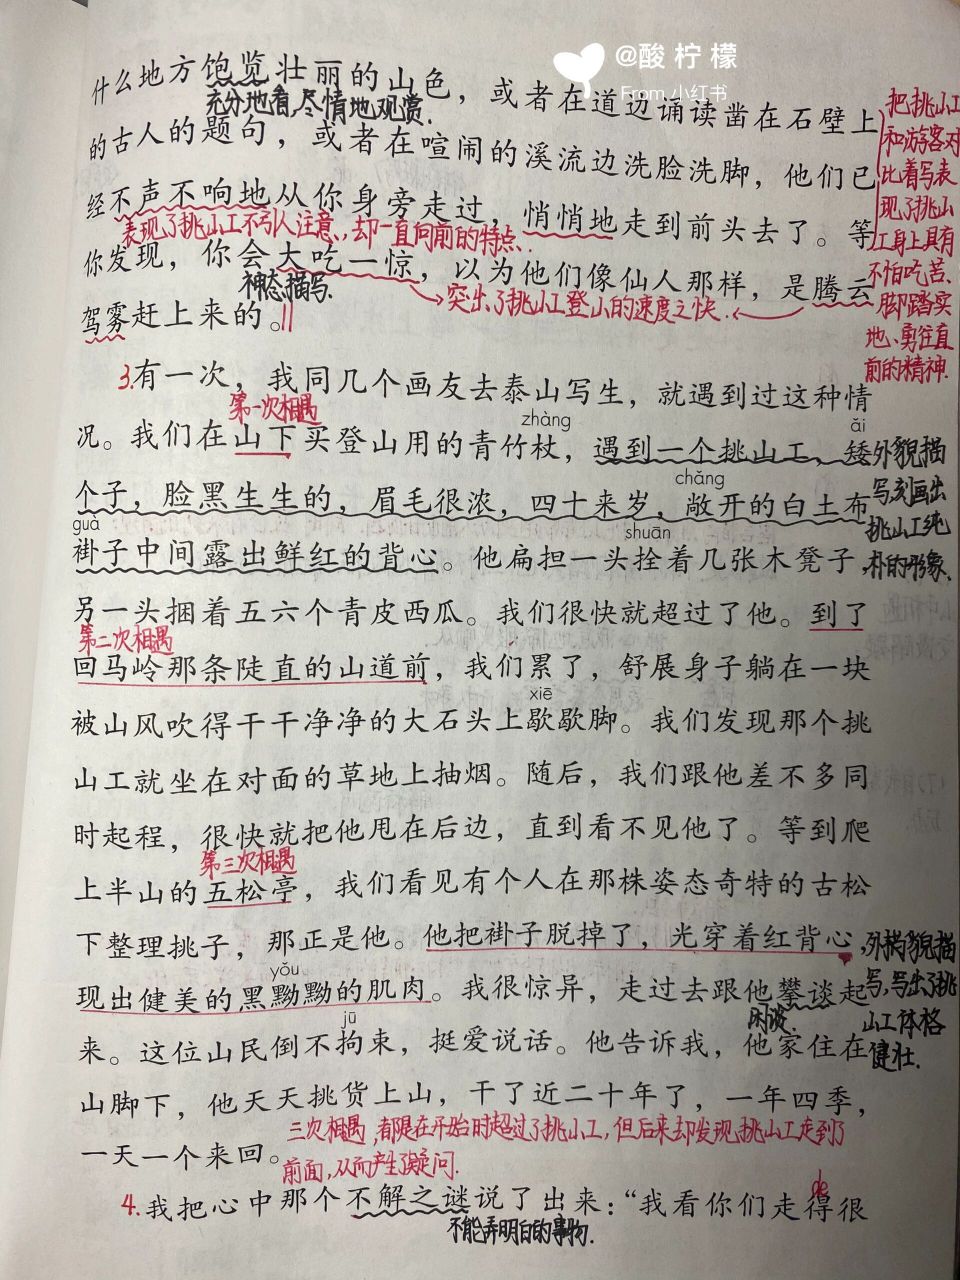 @酸柠檬
From 小红书
什么地方饱览壮丽的山色，或者在道边诵读凿在石壁上
充分地看,尽情地观赏.
的古人的题句，或者在喧闹的溪流边洗脸洗脚，他们已
经不声不响地从你身旁走过，悄悄地走到前头去了。等
表现了挑山工不引人注意,却一直向前的特点.
你发现，你会大吃一惊，以为他们像仙人那样，是腾云
神态描写.
突出了挑山工登山的速度之快.
驾雾赶上来的。
把挑山工
和游客对
比着写表
现了挑山
工身上具有
不怕吃苦、
脚踏实
地、勇往直
前的精神.
3.有一次，我同几个画友去泰山写生，就遇到过这种情
第一次相遇
zhàng
ǎi
况。我们在山下买登山用的青竹杖，遇到一个挑山工，矮
chǎng
个子，脸黑生生的，眉毛很浓，四十来岁，敞开的白土布
guà
shuān
褂子中间露出鲜红的背心。他扁担一头拴着几张木凳子，
外貌描
写,刻画出
挑山工纯
朴的形象.
另一头捆着五六个青皮西瓜。我们很快就超过了他。到了
第二次相遇
回马岭那条陡直的山道前，我们累了，舒展身子躺在一块
xiē
被山风吹得干干净净的大石头上歇歇脚。我们发现那个挑
山工就坐在对面的草地上抽烟。随后，我们跟他差不多同
时起程，很快就把他甩在后边，直到看不见他了。等到爬
第三次相遇
上半山的五松亭，我们看见有个人在那株姿态奇特的古松
下整理挑子，那正是他。他把褂子脱掉了，光穿着红背心，
yǒu
现出健美的黑黝黝的肌肉。我很惊异，走过去跟他攀谈起
闲谈.
外貌描
写,写出了挑
山工体格
健壮.
jū
来。这位山民倒不拘束，挺爱说话。他告诉我，他家住在
山脚下，他天天挑货上山，干了近二十年了，一年四季，
一天一个来回。
三次相遇,都是在开始时超过了挑山工,但后来却发现,挑山工走到了
前面,从而产生了疑问.
de
4.我把心中那个不解之谜说了出来：“我看你们走得很
不能弄明白的事物.